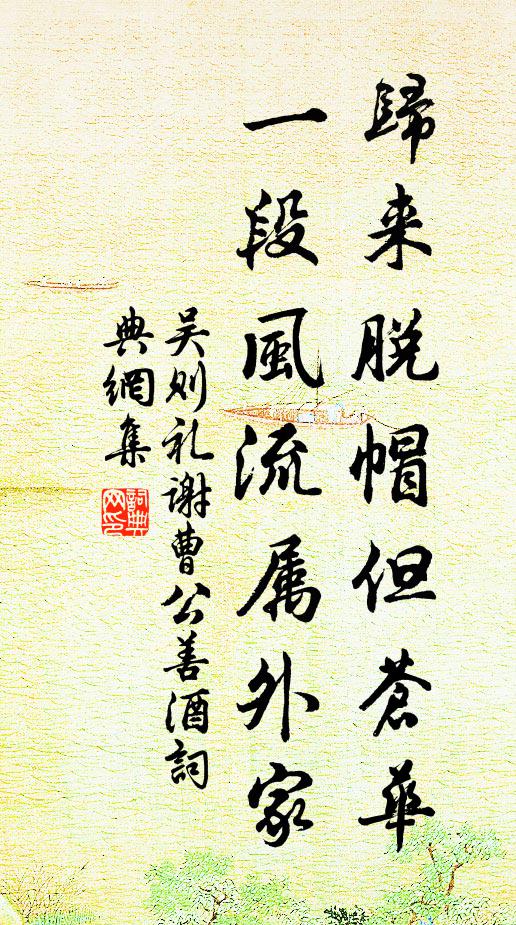 歸来脱帽但蒼華
一段風流属外家
吴则礼謝曹公善酒詞
典網集
詞典网印